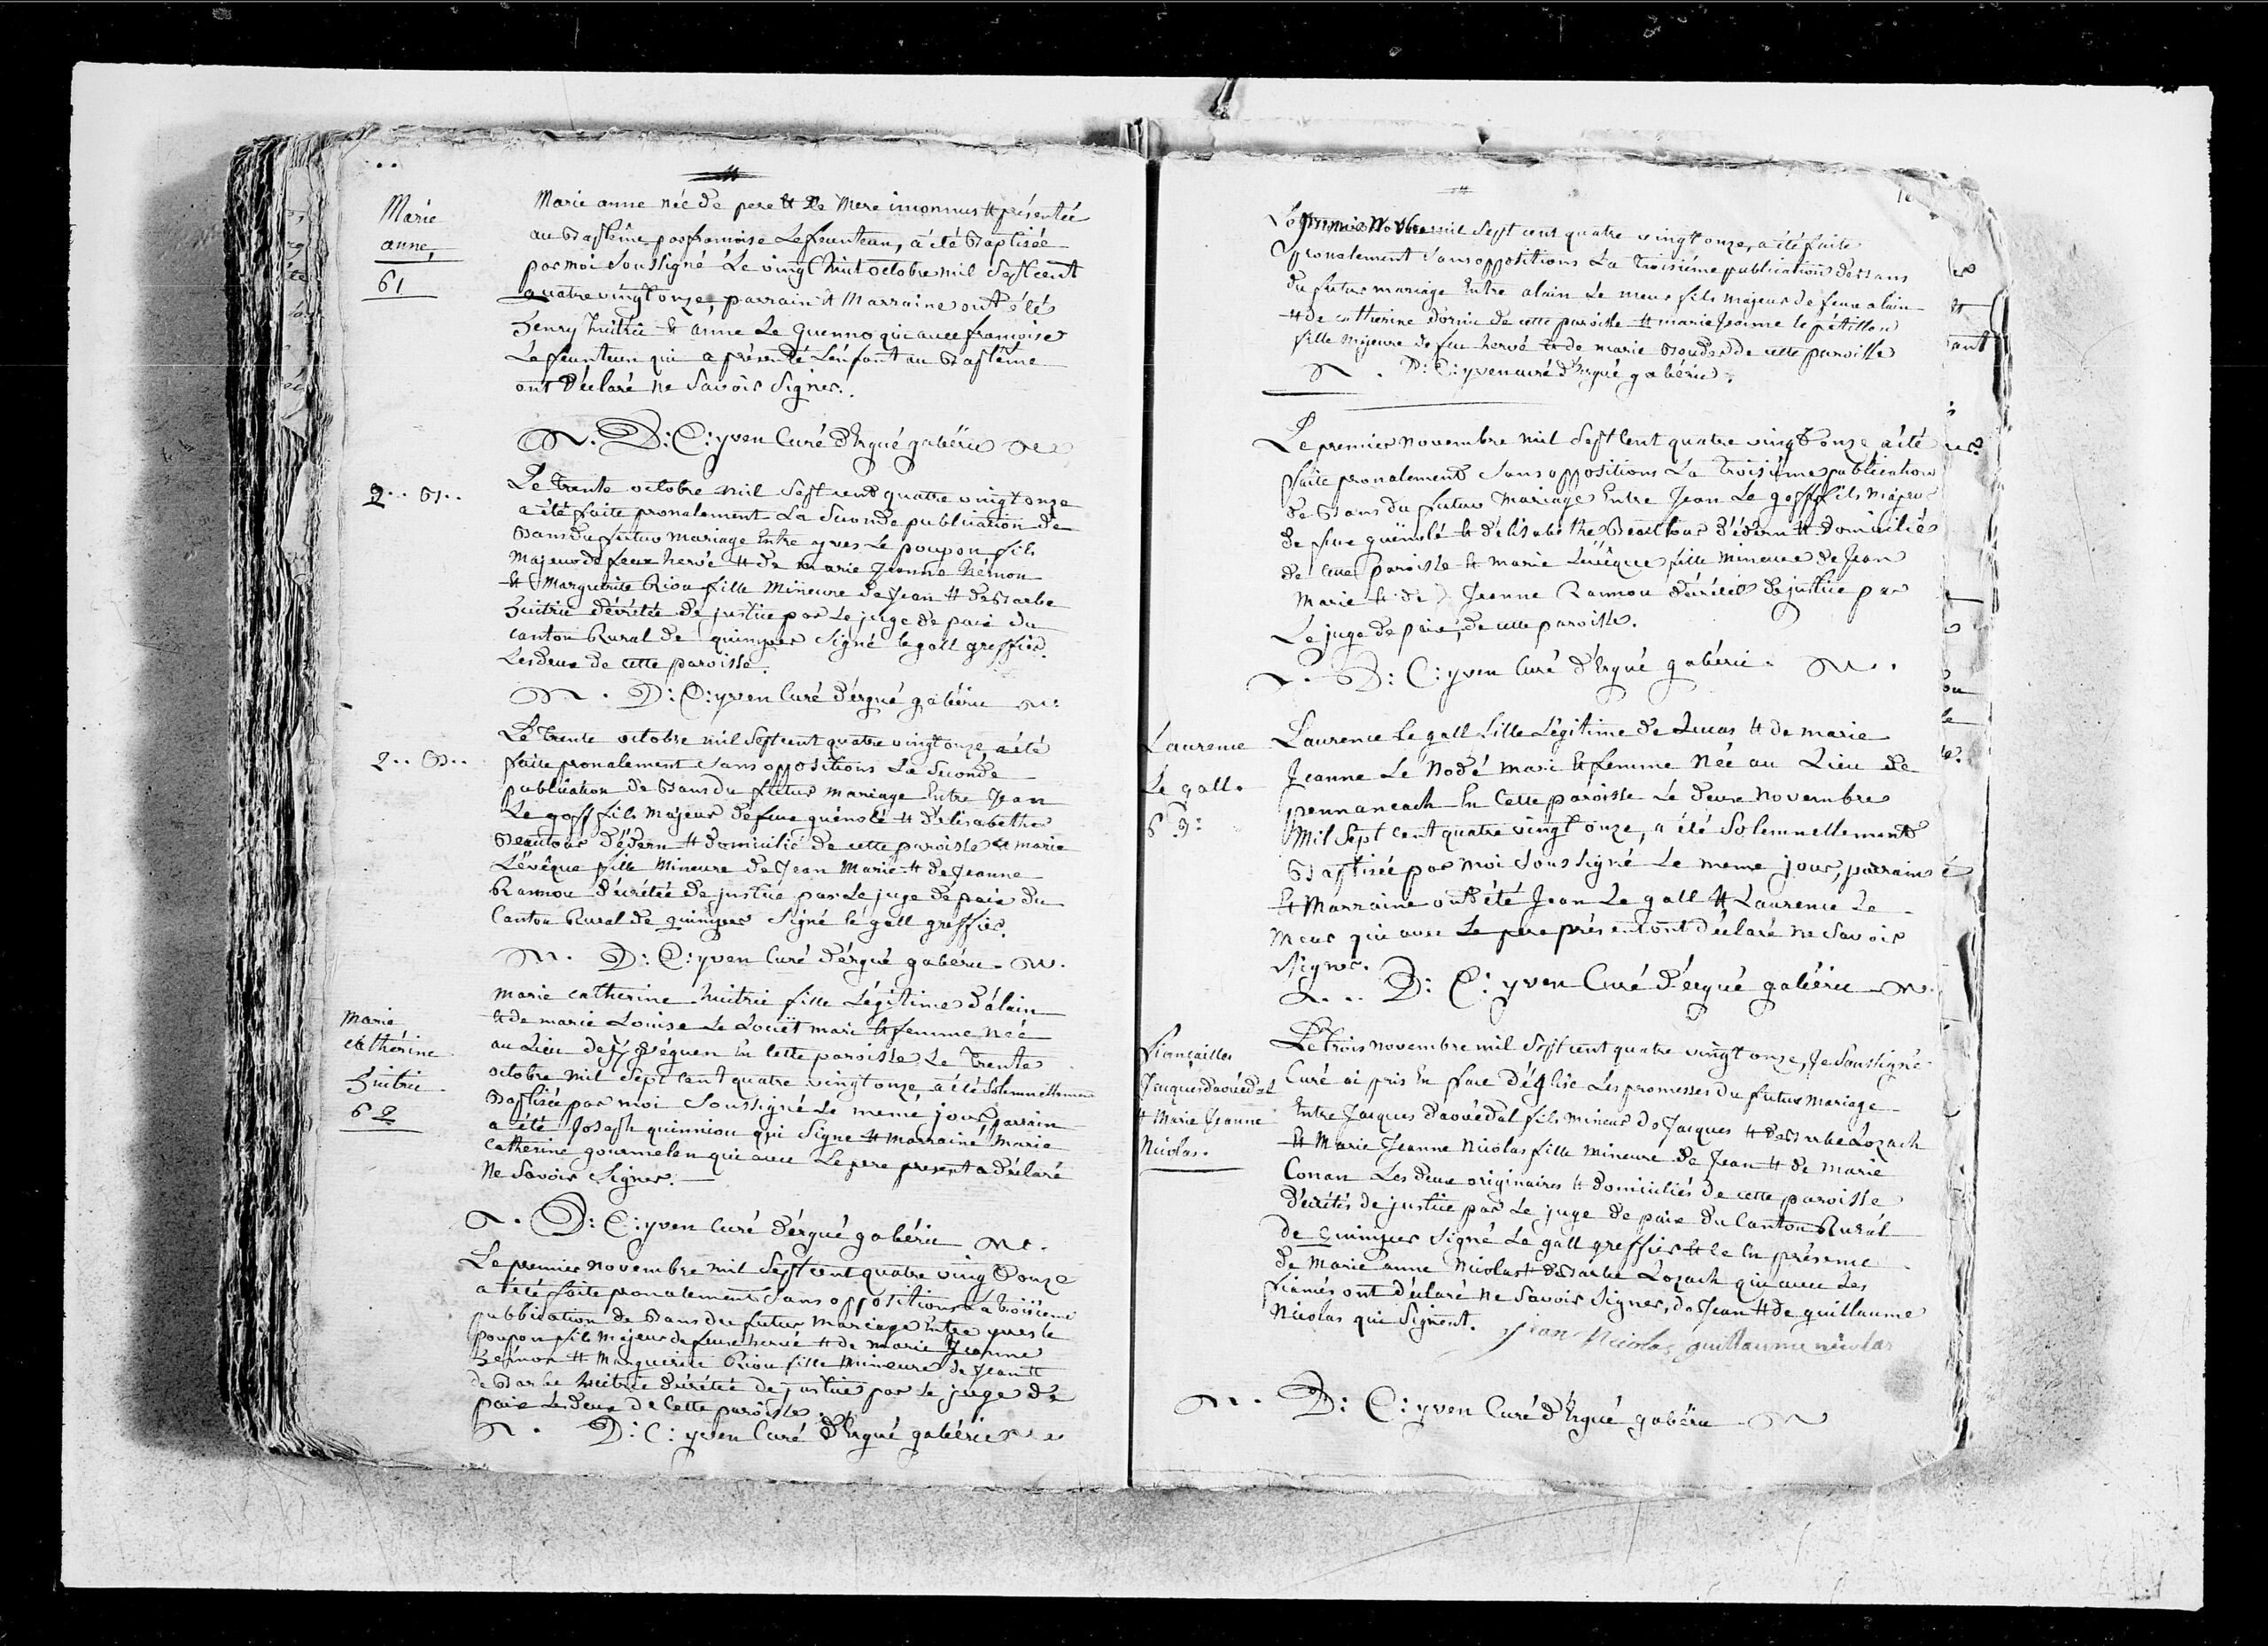 Marie
anne,
61
Marie anne née de pere et de Mere inconnus et présentée
au Baptême par francoise Le feunteun, a été Baptisée
par moi soussigné Le vingt huit octobre mil Sept cent
quatre vingt onze parrain et Marraine ont étés
henry huitric et anne Le Guenno qui avec francoise
Le feunteun qui a présenté L'enfant au Baptême
ont déclaré ne Savoir Signer.
D: C: yven Curé d'Ergué gabéric
2.. B..
Le trente octobre mil Sept cent quatre vingt onze
a été faite pronalement La Seconde publication de
Bans du futur mariage Entre yves Le poupon fils
Majeur de feux hervé et de Marie Jeanne hémon
et Marguerite Riou fille Mineure de Jean et de Barbe
huitric décrétée de justice par Le juge de paix du
canton Rural de quimper Signé le gall greffier.
Les deux de cette paroisse.
D: C: yven Curé d'érgué gabéric
2.. B..
Le trente octobre mil Sept cent quatre vingt onze, a été
faite pronalement Sans oppositions La Seconde
publication de Bans du futur mariage Entre Jean
Le goff fils Majeur de feue guénolé et d'elisabethe
Beautour d'édern et domicilié de cette paroisse et marie
L'évêque fille Mineure de Jean Marie et de Jeanne
Rannou décrétée de justice par Le juge de paix du
Canton Rural de quimper Signé le gall greffier.
D: C: yven Curé d'érgué gabéric
Marie
cathérine
huitric
62
Marie catherine huitric fille Légitime d'alain
et de marie Louise Le Louët mari et femme née
au Lieu de en Cette paroisse Le trente
octobre Mil Sept Cent quatre vingt onze a été Solemnellement
Baptisée par moi Soussigné Le memé jour, parrain
a été Joseph quinniou qui Signe et marraine Marie
Catherine gourmelen qui avec Le pere present a déclaré
Ne Savoir Signer.
D: C: yven Curé d'érgué gabéric
Le premier novembre mil Sept cent quatre vingt onze
a été faite pronalement Sans oppositions La troisieme
publication de Bans du futur Mariage Entre yves le
poupon fils Majeur de feux hervé et de Marie Jeanne
hemon et Marguerite Riou fille Mineure de Jean et
de Barbe huitric décrétée de justice par le juge de
paix Les deux de Cette paroisse.
D: C: yven Curé d'Ergué gabéric
Le premier Novbre mil Sept cent quatre vingt onze, a été faite
pronalement Sans oppositions La troisiéme publication de Bans
du futur mariage Entre alain Le meur fils majeur de feux alain
et de catherine de cette paroisse et marie Jeanne le pétillon
fille Majeure de feu hervé et de marie de cette paroisse
D: C: yven curé d'Ergué gabéric.
Le premier novembre mil Sept Cent quatre vingt onze a été
faite pronalement Sans oppositions La troisiéme publication
de Bans du futur Mariage Entre Jean Le goff fils Majeur
de feue guénolé et d'élisabethe Beautour d'édern et domicilié
de cette paroisse et marie L'évêque fille Mineure de Jean
Marie et de Jeanne Rannou décrétée de justice par
Le juge de paix, de cette paroisse.
D: C: yven Curé d'Ergué gabéric.
Laurence
Le gall.
63:
Laurence Le gall fille Légitime de Lucas et de marie
Jeanne Le Nodé mari et femme Née au Lieu de
pennaneach En Cette paroisse Le deux Novembre
Mil Sept Cent quatre vingt onze, a été Solemnellement
Baptisée par moi Soussigné Le meme jour, parrain
et Marraine ont été Jean Le gall et Laurence Le
Meur qui avec Le pere présent ont déclaré ne Savoir
Signer.
D: C: yven Curé d'érgué gabéric
Fiançailles
Jacques daouédal
et Marie Jeanne
Nicolas.
Le trois novembre mil Sept cent quatre vingt onze, Je Soussigné
Curé ai pris En face d'église Les promesses du futur Mariage
Entre Jacques daouédal fils mineur de Jacques et de Barbe Lozach
et Marie Jeanne Nicolas fille mineure de Jean et de Marie
Conan Les deux originaires et domiciliés de cette paroisse
décrétés de justice par Le juge de paix du Canton Rural
de Quimper Signé Le gall greffier et ce En présence
de Marie anne Nicolas et de Barbe Lozach qui avec Les
fiancés ont déclaré ne Savoir Signer, de Jean et de guillaume
Nicolas qui Signent. jean Nicolas guillaume nicolas
D: C: yven Curé d'Ergué gabéric